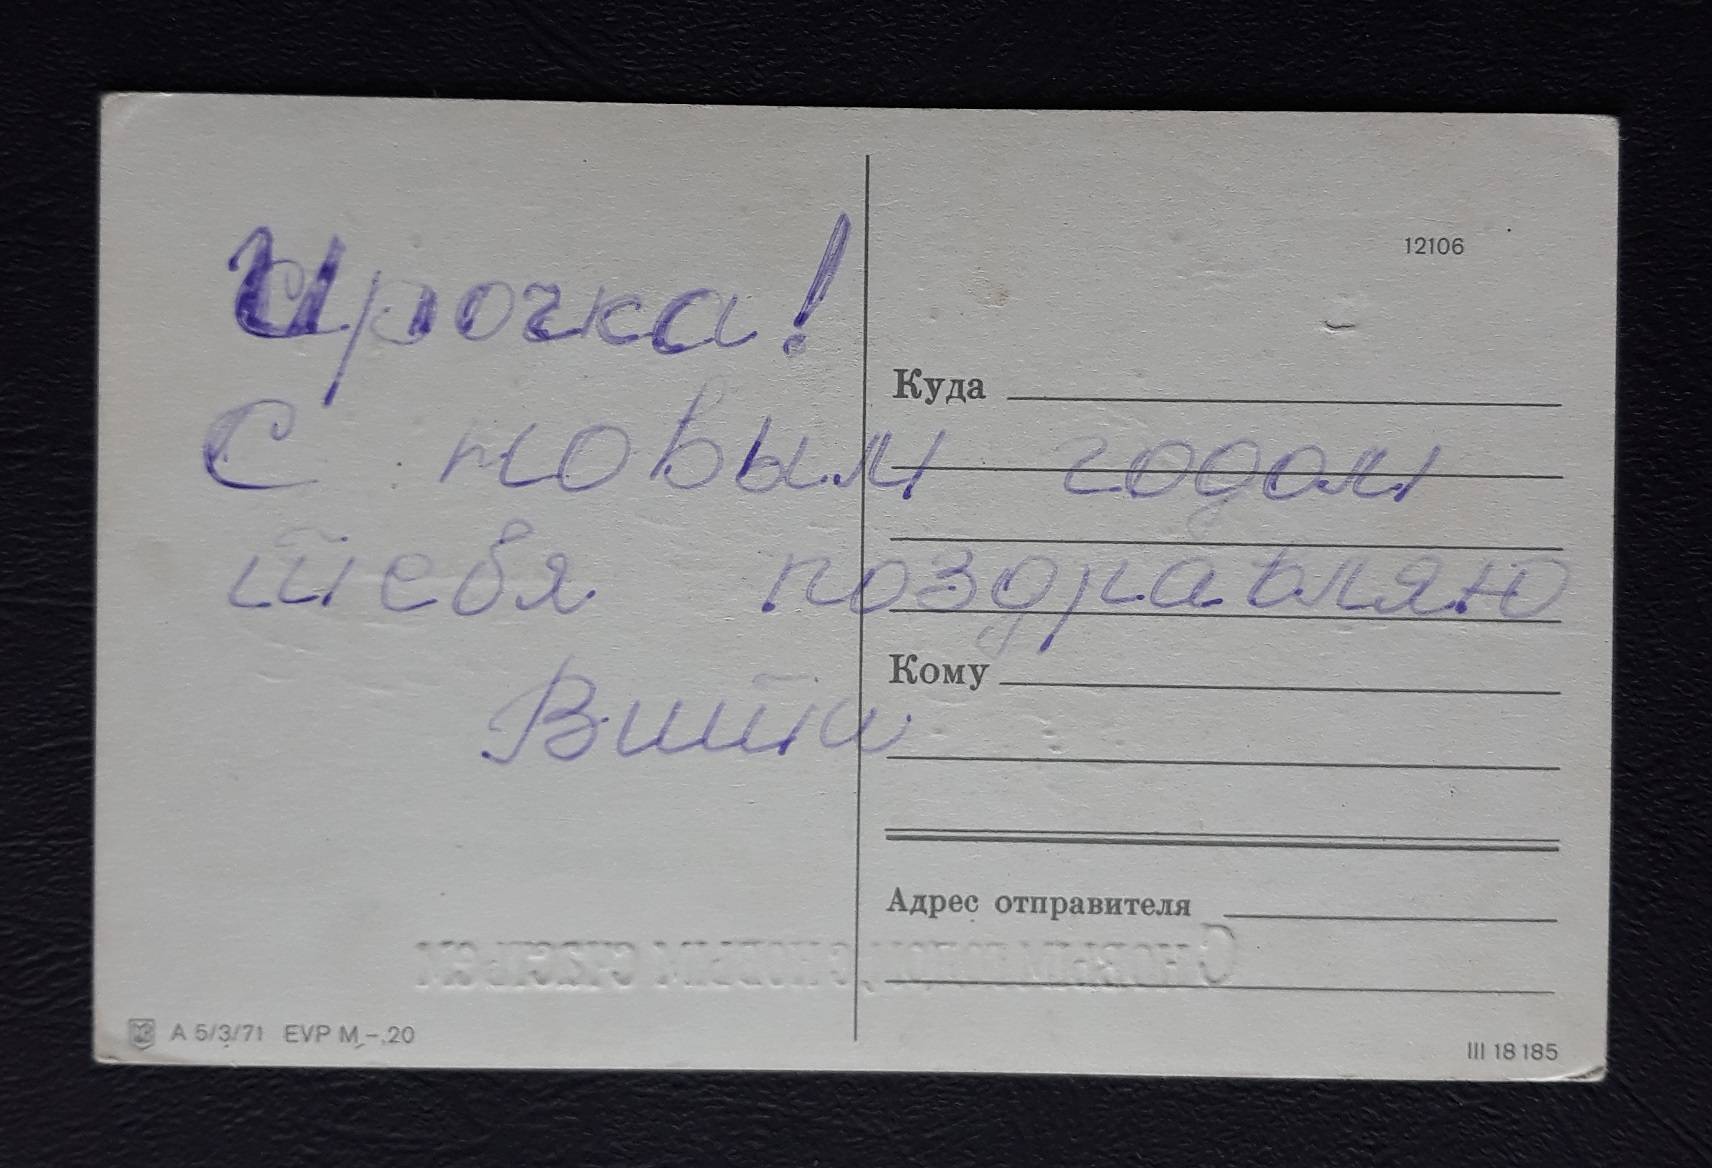 Ирочка!
С новым годом
тебя поздравляю
Витя
12106
Куда
Кому
Адрес отправителя
С новым годом, с новым счастьем
A 5/3/71 EVP M -.20
III 18 185